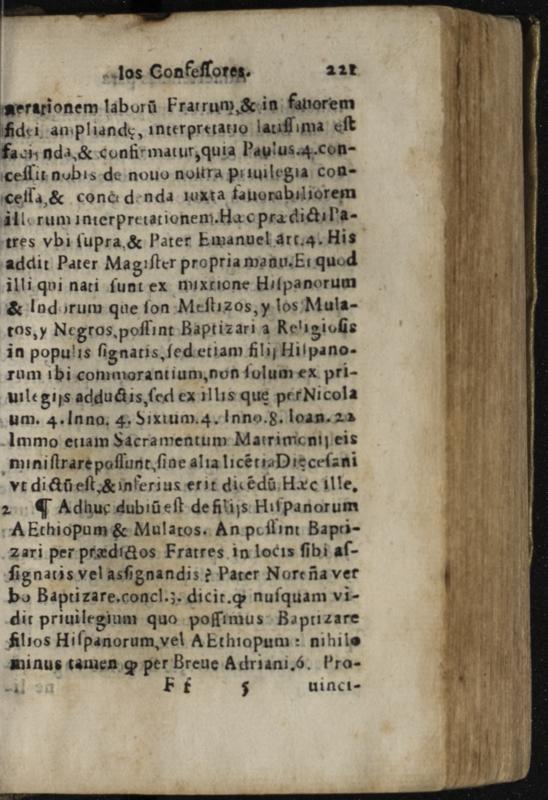 los Confessores. 221
nerationem laborũ Fratrum,& in fauorem
fidei ampliandę, interpretatio latissima est
facienda,& confirmatur,quia Paulus.4.con-
cessit nobis de nouo nostra priuilegia con-
cessa,& concedenda iuxta fauorabiliorem
illorum interpretationem.Hæc prædicti Pa-
tres vbi supra,& Pater Emanuel art.4. His
addit Pater Magister propria manu.Et quod
illi qui nati sunt ex mixtione Hispanorum
& Indorum que son Mestizos, y los Mula-
tos,y Negros,possint Baptizari a Religiosis
in populis signatis,sed etiam filij Hispano-
rum ibi commorantium,non solum ex pri-
uilegijs adductis,sed ex illis quę per Nicola
um. 4. Inno. 4. Sixtum.4. Inno.8. Ioan.22
Immo etiam Sacramentum Matrimonij eis
ministrare possunt,sine alia licẽtia Diœcesani
vt dictũ est,& inferius erit dicẽdũ Hæc ille.
2 ¶ Adhuc dubiũ est de filijs Hispanorum
AEthiopum & Mulatos. An possint Bapti-
zari per prædictos Fratres in locis sibi as-
signatis vel assignandis ? Pater Noreña ver
bo Baptizare.concl.3. dicit.ꝙ nusquam vi-
dit priuilegium quo possimus Baptizare
filios Hispanorum,vel AEthiopum : nihilo
minus tamen ꝙ per Breue Adriani.6. Pro-
F f 5 uinci-